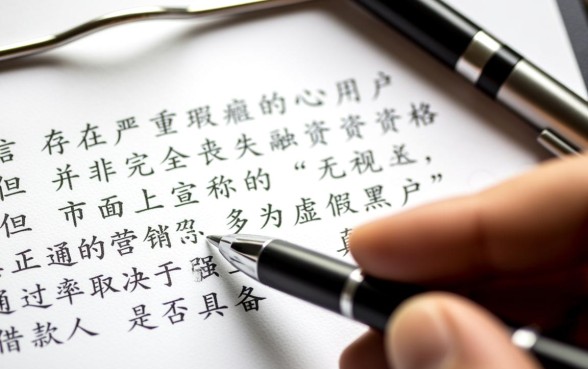 言 存在严重瑕疵的心用户
但 并非完全丧失融资资资格
但 市面上宣称的“无视送，
正通的营销 多为虚假黑户”
通过率取决于强
借款人 是否具备